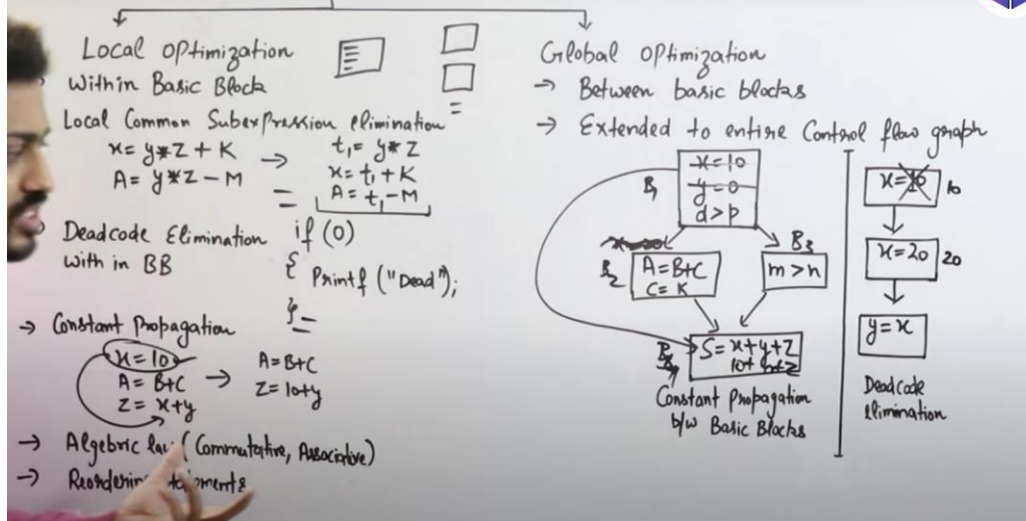 Local Optimization
Within Basic Block
Local Common Subexpression elimination
x = y*z + K → t₁ = y*z
A = y*z - M
x = t₁ + K
A = t₁ - M
Deadcode Elimination
with in BB
if (0)
{
Printf ("Dead");
}
→ Constant Propagation
x = 10
A = B+C →
z = x+y
A = B+C
z = 10+y
→ Algebric law (Commutative, Associative)
→ Reordering
Global Optimization
→ Between basic blocks
→ Extended to entire Control flow graph
B₁
x = 10
y = 0
d > p
B₂
A = B+C
C = K
B₃
m > n
S = x+y+z
Constant Propagation
b/w Basic Blocks
x = 10
10
x = 20
20
y = x
Deadcode
elimination